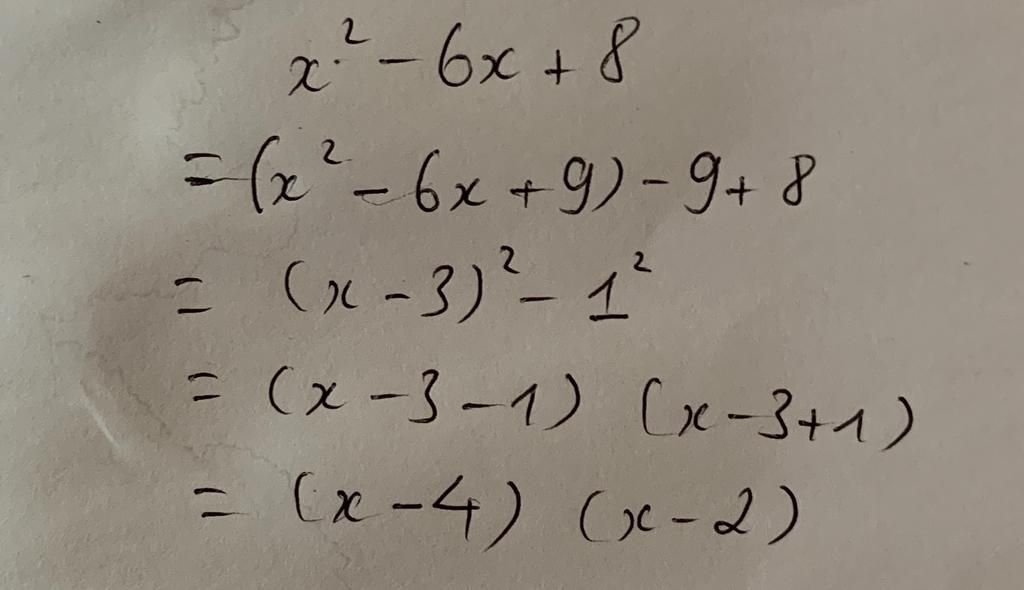 x² - 6x + 8
= (x² - 6x + 9) - 9 + 8
= (x - 3)² - 1²
= (x - 3 - 1) (x - 3 + 1)
= (x - 4) (x - 2)